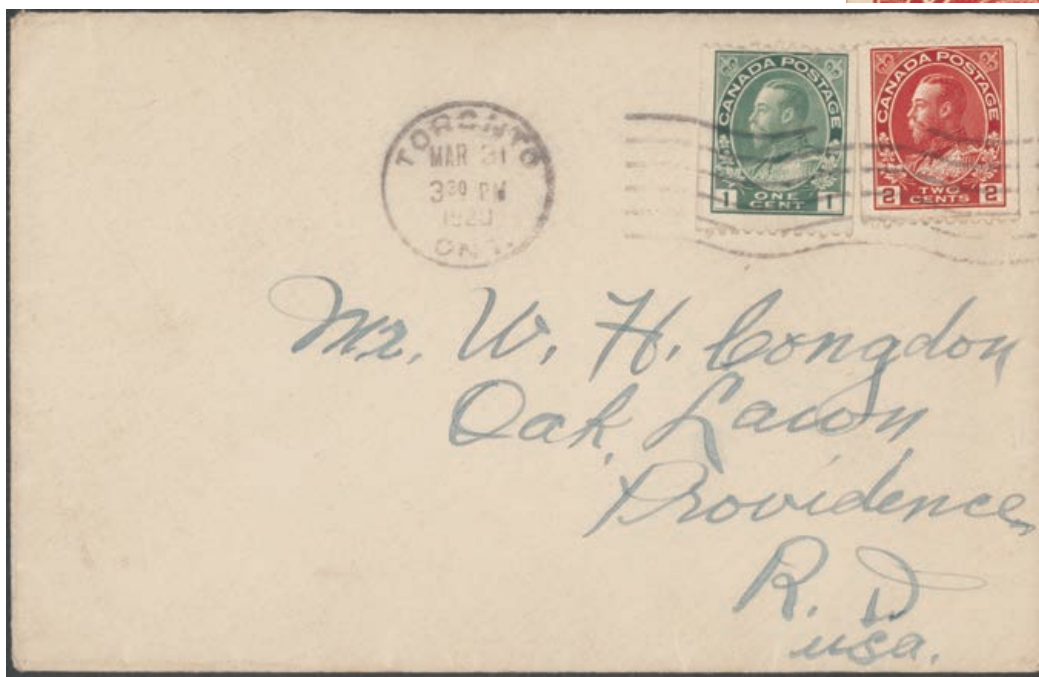 TORONTO
MAR 31
3 30 PM
1920
ONT.
CANADA POSTAGE
1 ONE CENT 1
CANADA POSTAGE
2 TWO CENTS 2
Mr. W. H. Congdon
Oak Lawn
Providence
R. I.
usa.